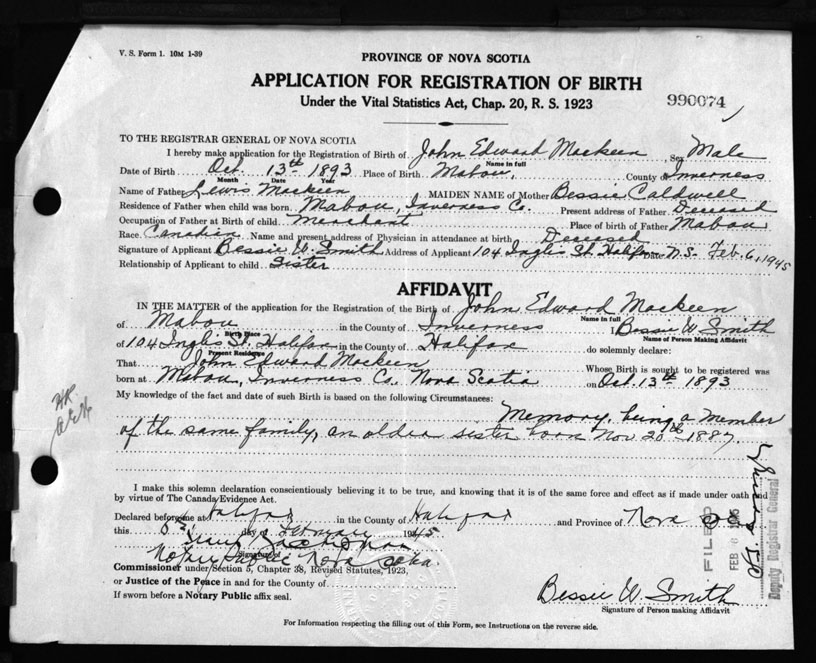 V. S. Form 1. 10M 1-39
PROVINCE OF NOVA SCOTIA
APPLICATION FOR REGISTRATION OF BIRTH
Under the Vital Statistics Act, Chap. 20, R. S. 1923
990074
TO THE REGISTRAR GENERAL OF NOVA SCOTIA
I hereby make application for the Registration of Birth of John Edward Mackeen Sex Male
Name in full
Date of Birth Oct. 13th 1893 Place of Birth Mabou, County of Inverness
Month Date Year
Name of Father Lewis Mackeen MAIDEN NAME of Mother Bessie Caldwell
Residence of Father when child was born Mabou, Inverness Co. Present address of Father Deceased
Occupation of Father at Birth of child Merchant Place of birth of Father Mabou
Race Canadian Name and present address of Physician in attendance at birth Deceased
Signature of Applicant Bessie W. Smith Address of Applicant 104 Inglis St. Halifax Date N.S. Feb. 6, 1945
Relationship of Applicant to child Sister
AFFIDAVIT
IN THE MATTER of the application for the Registration of the Birth of John Edward Mackeen
Name in full
of Mabou in the County of Inverness I, Bessie W. Smith
Birth Place Name of Person Making Affidavit
of 104 Inglis St. Halifax in the County of Halifax do solemnly declare:
Present Residence
That John Edward Mackeen Whose Birth is sought to be registered was
born at Mabou, Inverness Co., Nova Scotia on Oct. 13th 1893
My knowledge of the fact and date of such Birth is based on the following Circumstances:
Memory, being a member
of the same family, an older sister born Nov 20th 1887.
I make this solemn declaration conscientiously believing it to be true, and knowing that it is of the same force and effect as if made under oath and
by virtue of The Canada Evidence Act.
Declared before me at Halifax in the County of Halifax and Province of Nova
this day of February 1945
Signature of
Notary Public Nova Scotia
Commissioner under Section 5, Chapter 38, Revised Statutes, 1923,
or Justice of the Peace in and for the County of
If sworn before a Notary Public affix seal.
Bessie W. Smith
Signature of Person making Affidavit
For Information respecting the filling out of this Form, see Instructions on the reverse side.
FILED
FEB 8 1945
Deputy Registrar General